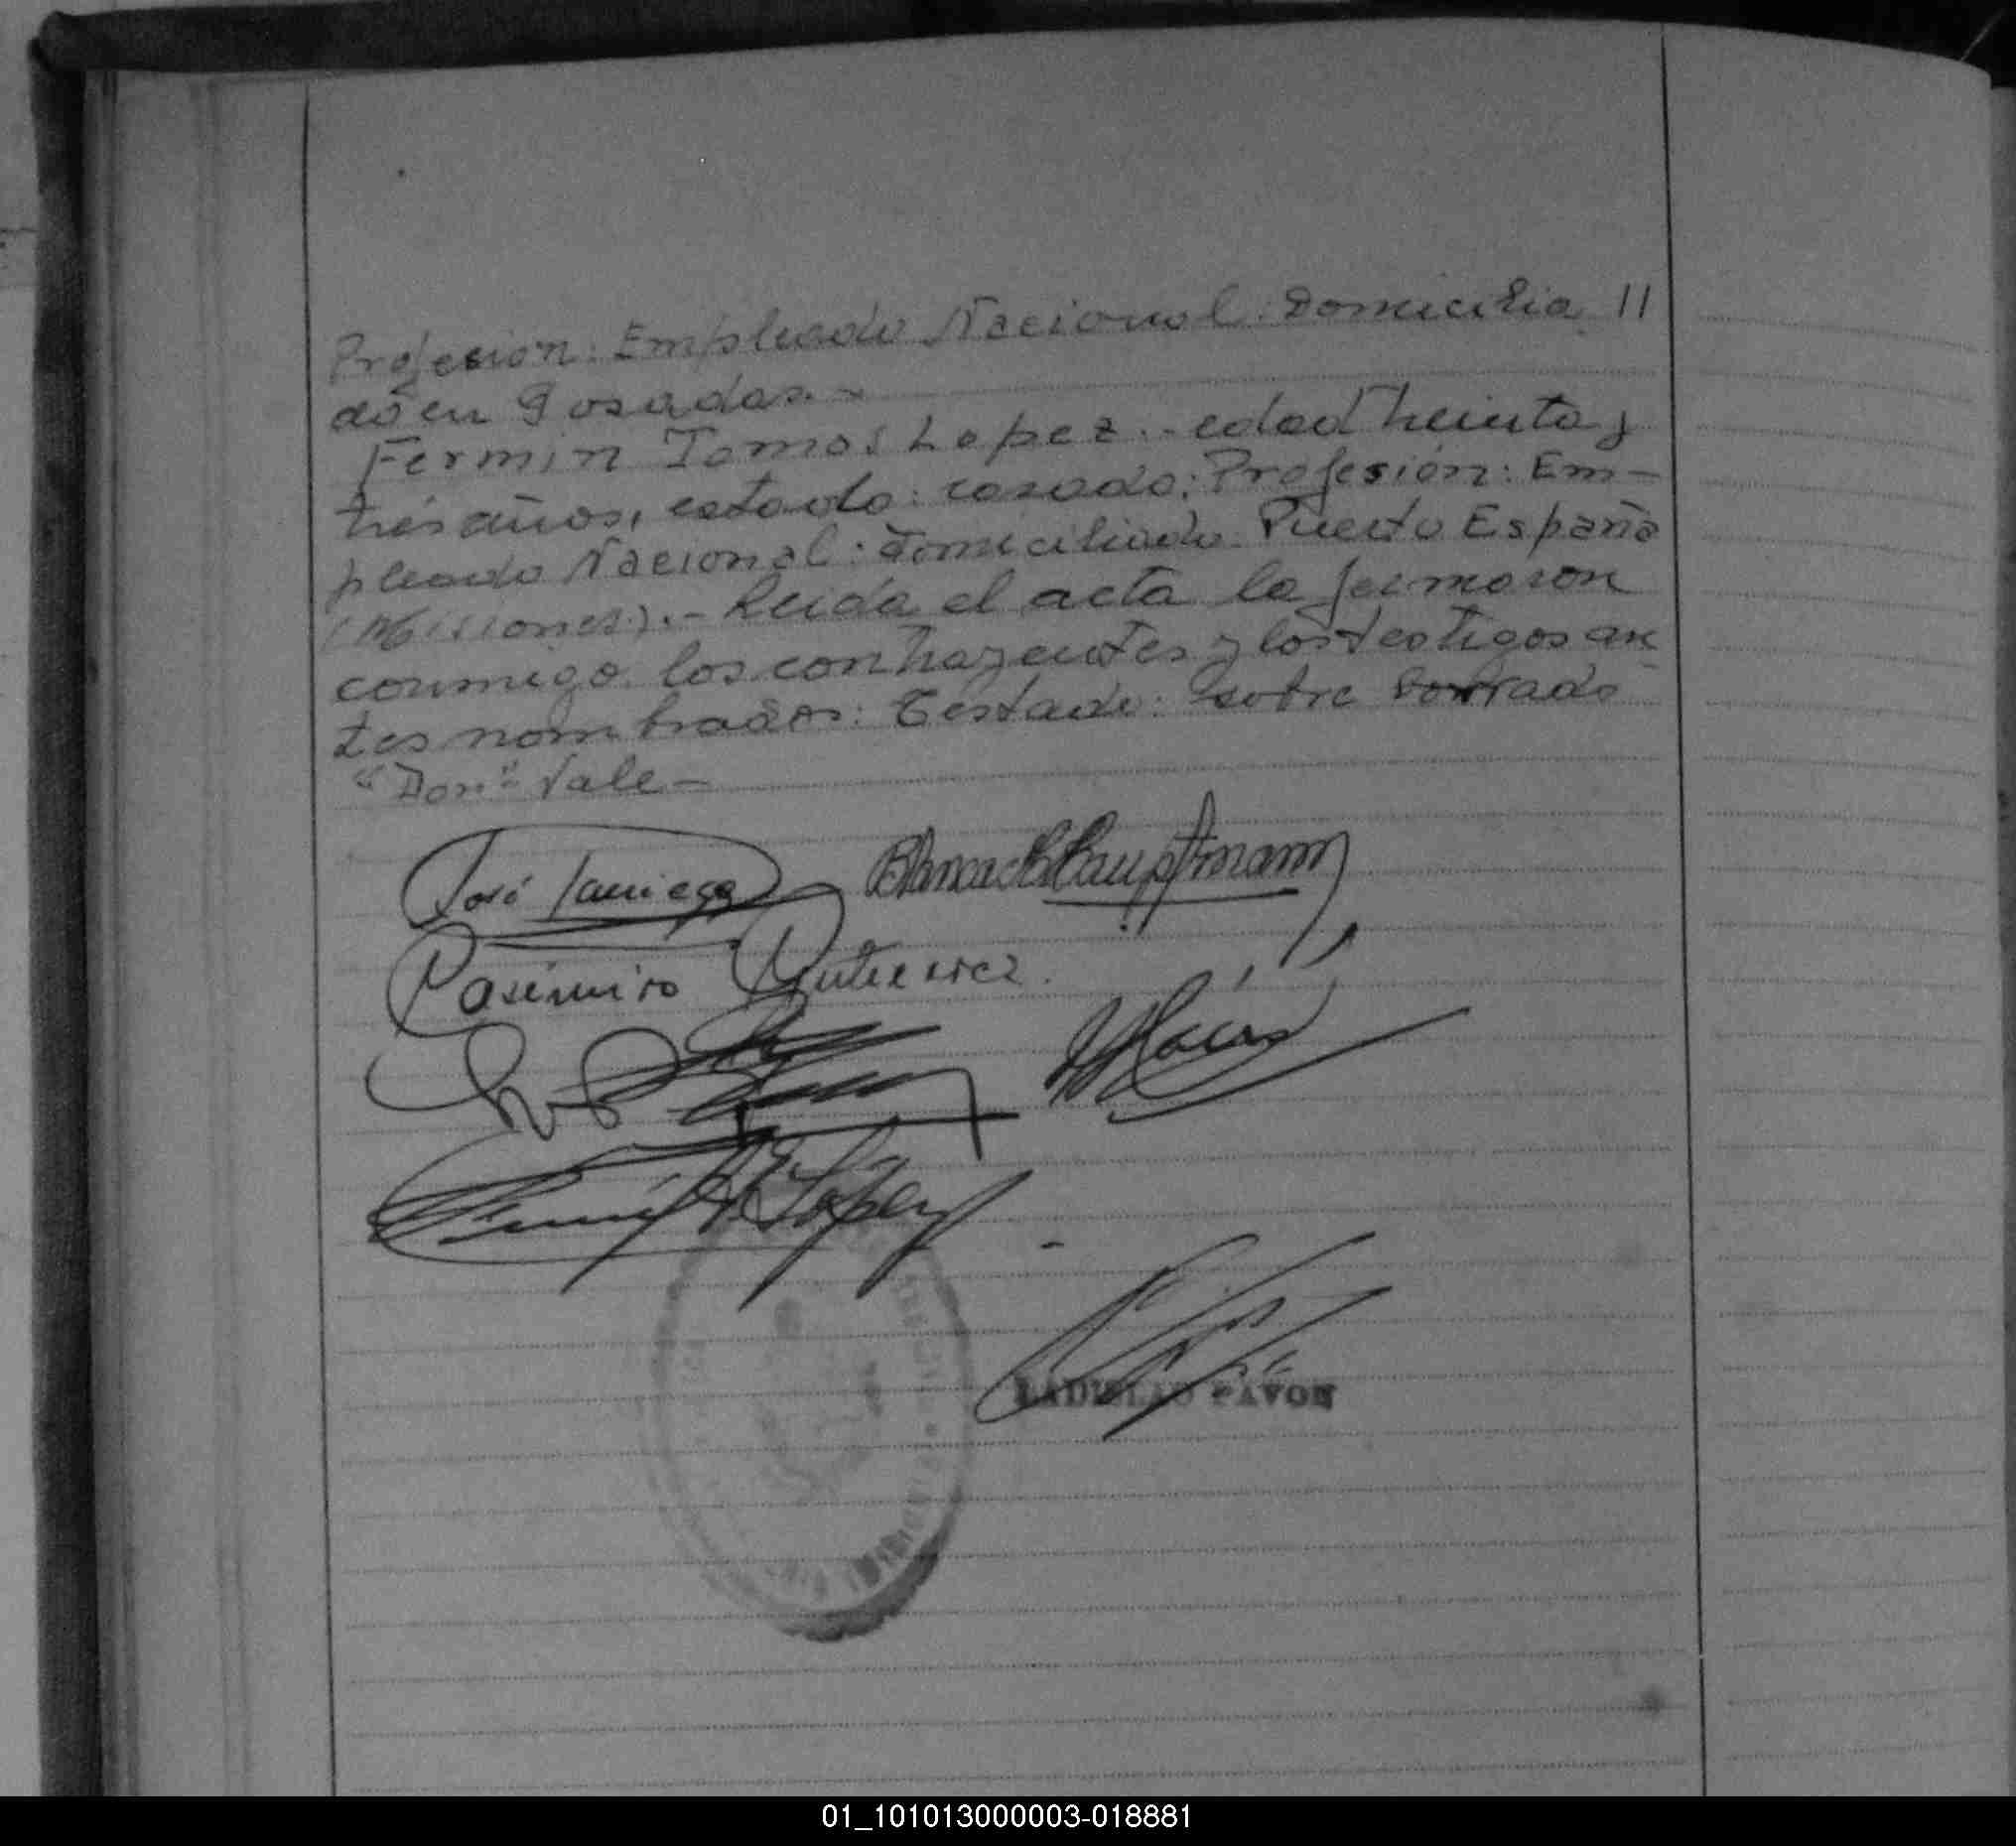 Profesion: Empleado Nacional: Domicilia 11
do en Posadas.-
Fermin Tomas Lopez.- edad treinta y
tres años, estado: casado: Profesión: Em-
pleado Nacional: Domiciliado: Puerto España
(Misiones).- Leida el acta la firmaron
conmigo los contrayentes y los testigos an
tes nombrados: Testado: sobre borrado
"Don" Vale-
José
Hauptmann
Casimiro Gutierrez.
Lopez
LADISLAO PAVON
01_101013000003-018881